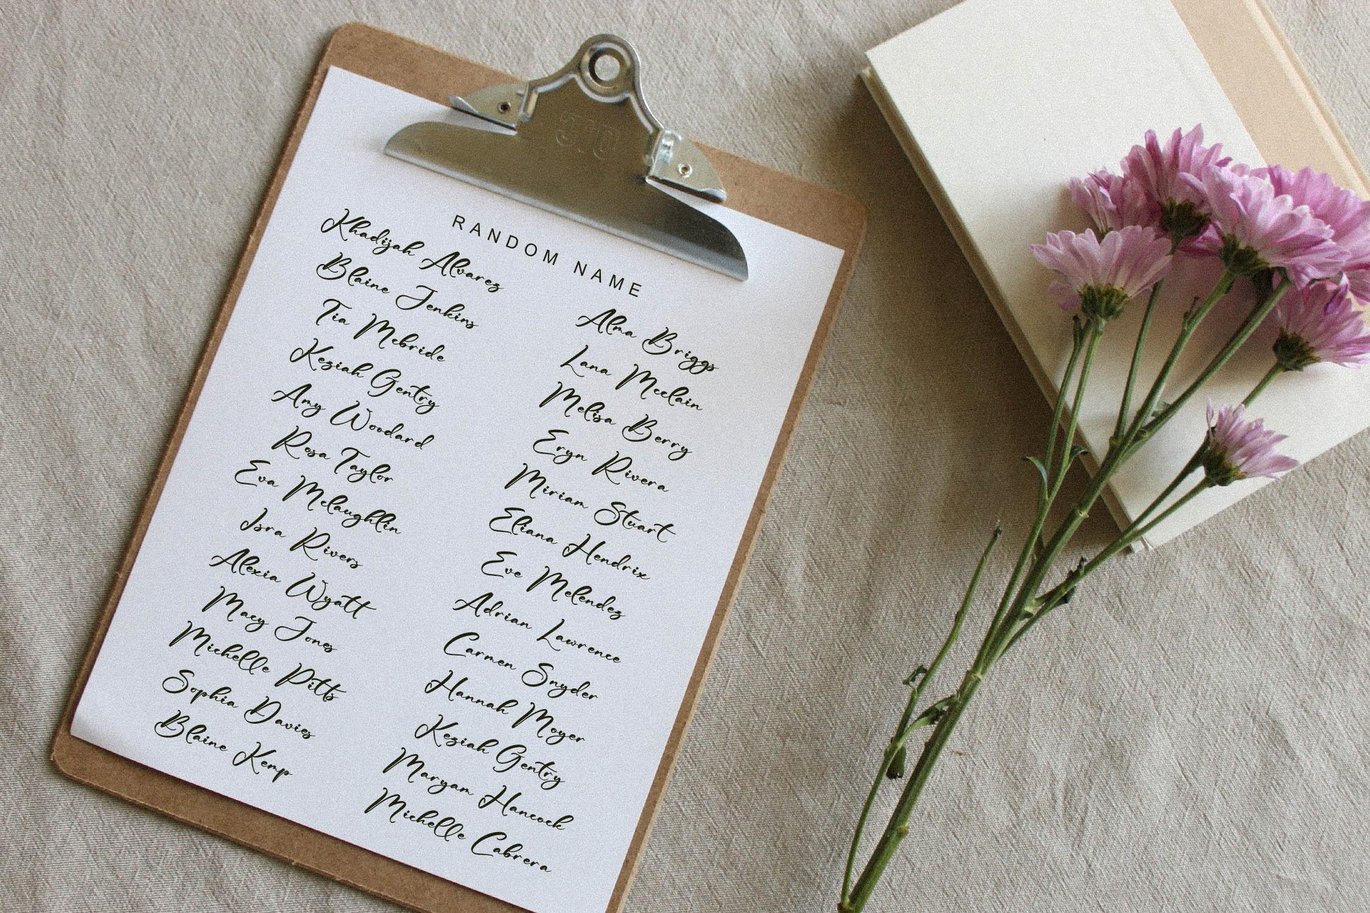 RANDOM NAME
Khadijah Alvarez
Blaine Jenkins
Tia Mcbride
Keziah Gentry
Amy Woodard
Rosa Taylor
Eva Mclaughlin
Isra Rivers
Alexia Wyatt
Macy Jones
Michelle Pitts
Sophia Davies
Blaine Kemp
Alma Briggs
Lana Mcclain
Melisa Berry
Eryn Rivera
Miriam Stuart
Eliana Hendrix
Eve Melendez
Adrian Lawrence
Carmen Snyder
Hannah Moyer
Keziah Gentry
Maryam Hancock
Michelle Cabrera